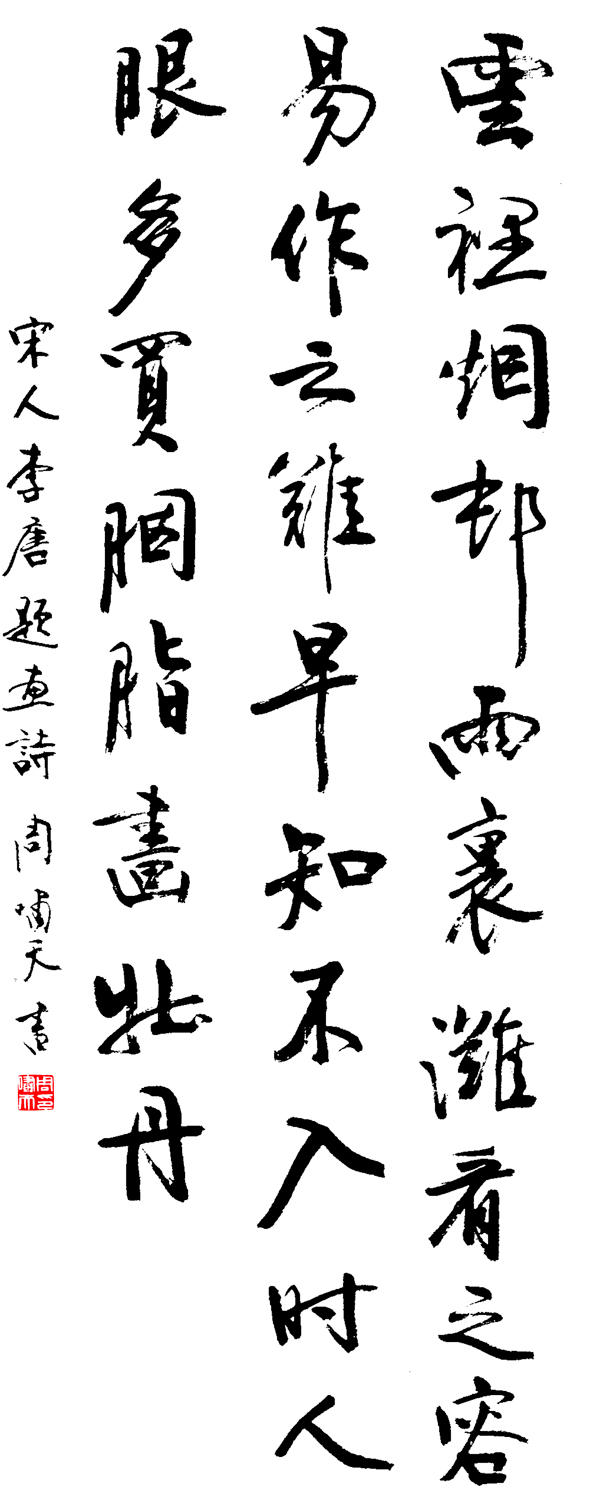 雲裡烟邨雨裏灘看之容
易作之難早知不入时人
眼多買胭脂畫牡丹
宋人李唐題畫詩 周嘯天書